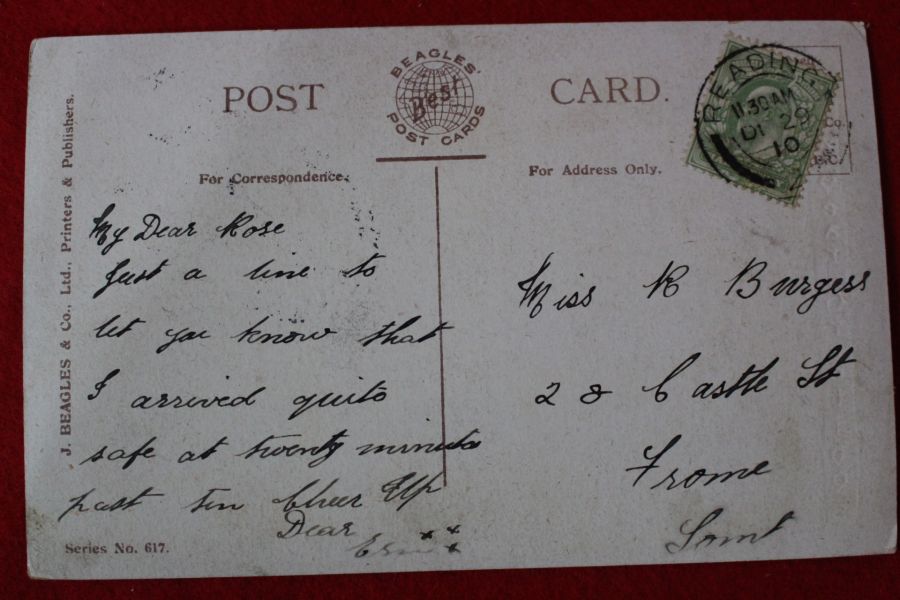 POST CARD.
BEAGLES'
Best
POST CARDS
READING
11.30 AM
10
For Correspondence.
For Address Only.
J. BEAGLES & Co., Ltd., Printers & Publishers.
My Dear Rose
Just a line to
let you know that
I arrived quite
safe at twenty minute
past ten Cheer Up
Dear
Miss R Burgess
28 Castle St
Frome
Somt
Series No. 617.